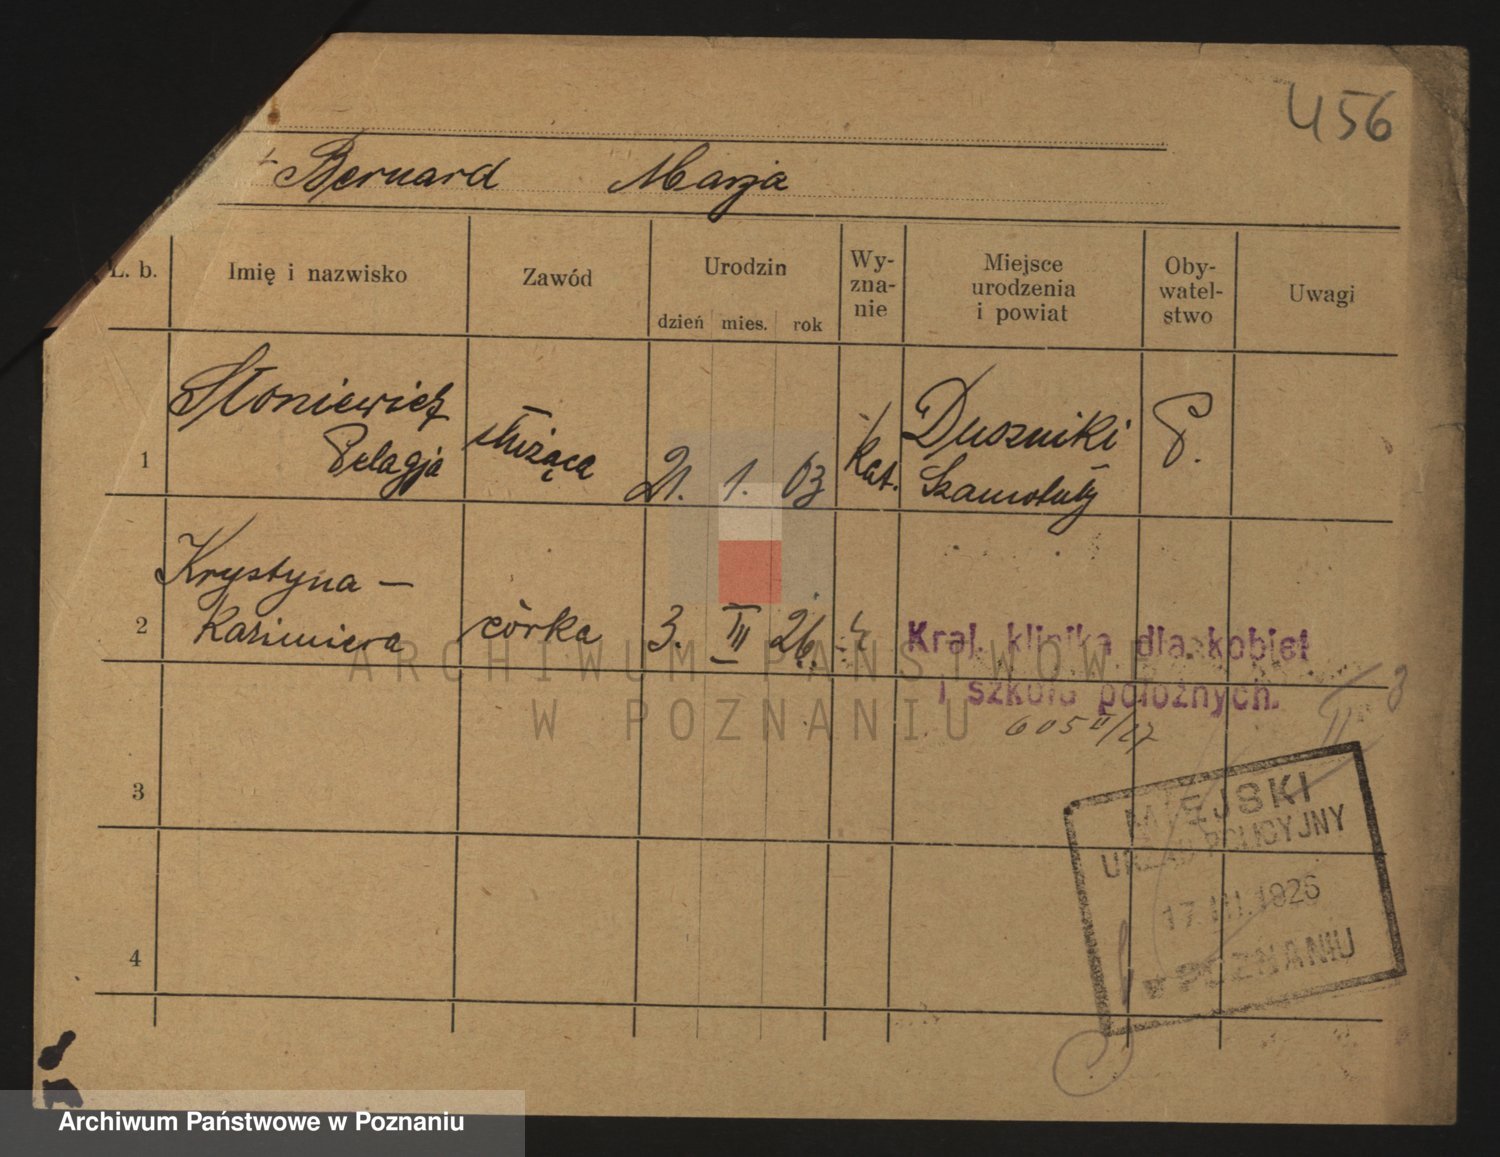 456
Bernard Marja
L. b.
Imię i nazwisko
Zawód
Urodzin
dzień mies. rok
Wy-
zna-
nie
Miejsce
urodzenia
i powiat
Oby-
watel-
stwo
Uwagi
1
Słoniewicz
Pelagja
służąca
21. 1. 03
kat.
Duszniki
Szamotuły
P.
2
Krystyna –
Kazimiera
córka
3. III 26.
Kraj. klinika dla kobiet
i szkoła położnych.
605 II/27
3
4
MIEJSKI
URZĄD POLICYJNY
17. III. 1926
w POZNANIU
ARCHIWUM PAŃSTWOWE
W POZNANIU
Archiwum Państwowe w Poznaniu